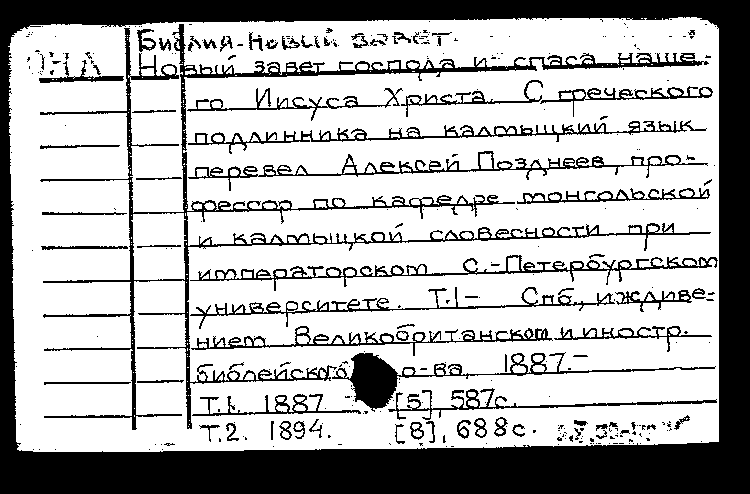 Библия-Новый завет.
ОНЛ Новый завет господа и спаса наше-
го Иисуса Христа. С греческого
подлинника на калмыцкий язык
перевел Алексей Позднеев, про-
фессор по кафедре монгольской
и калмыцкой словесности при
императорском С.-Петербургском
университете. Т.1- Спб., иждиве-
нием Великобританском и иностр.
библейского о-ва, 1887.-
Т.1. 1887 - [5], 587с.
Т.2. 1894. [8], 688с.